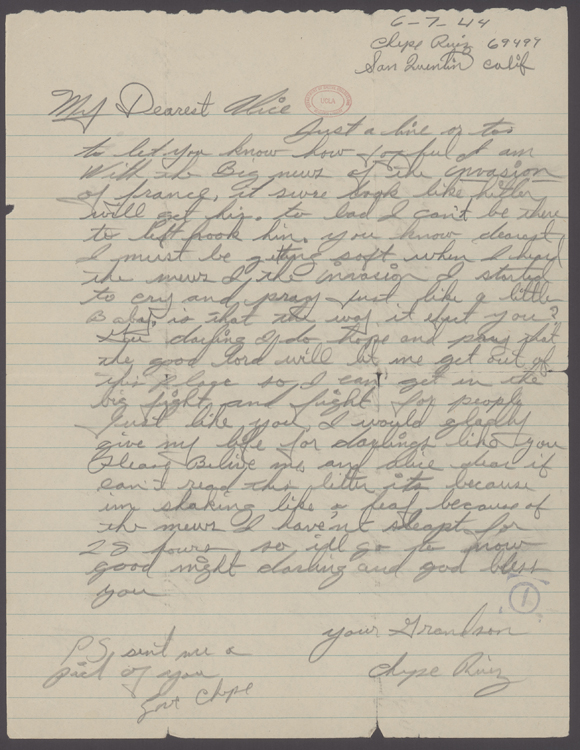 6-7-44
Chepe Ruiz 69497
San Quentin Calif
UCLA
My Dearest Alice
Just a line or too
to let you know how joyful I am
With the Big news of the invasion
of france, it sure look like hitler
will get his. to bad I can't be there
to left hook him. you know dearest
I must be getting soft when I heard
the news of the invasion I started
to cry and pray Just like a little
Baby, is that the way it hurt you?
darling I do hope and pray that
the good lord will let me get out of
this place so I can get in the
big fight and fight for people
Just like you, I would gladly
give my life for darlings like you
Please Belive me and Alice dear if
can't read this letter its because
im shaking like a leaf because of
the news I haven't sleapt for
28 hours so ill go to now
good night darling and god bless
you
1
your Grandson
Chepe Ruiz
PS sent me a
pict of you
Chepe